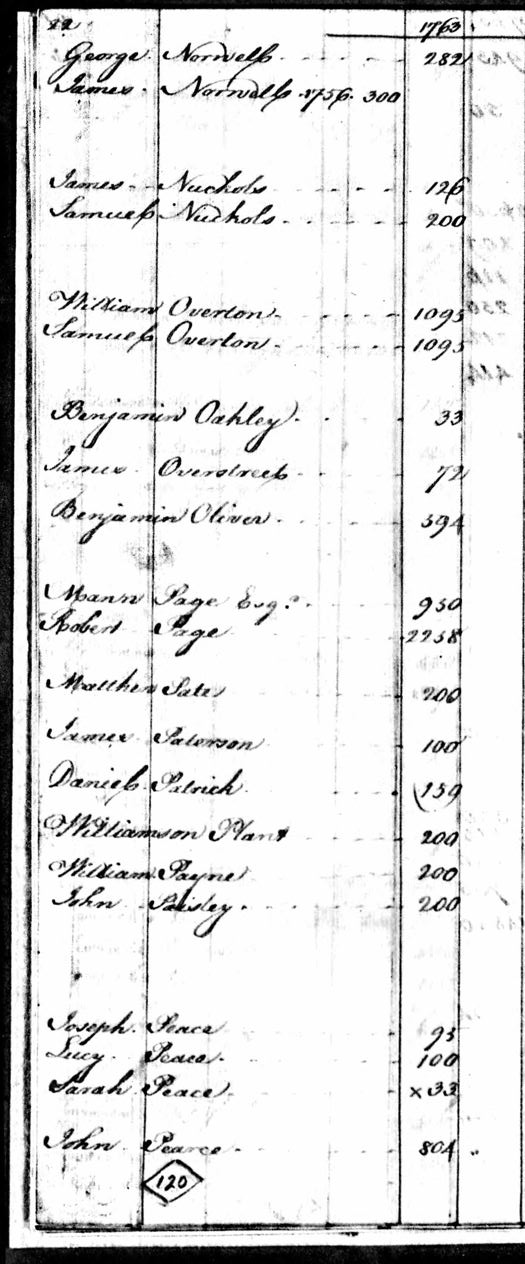 22 1763
George Norvell 282
James Norvell 1756. 300
James Nuchols 126
Samuel Nuchols 200
William Overton 1095
Samuel Overton 1095
Benjamin Oakley 33
James Overstreet 72
Benjamin Oliver 594
Mann Page Esqr. 950
Robert Page 2258
Matthew Pate 200
James Paterson 100
Daniel Patrick 159
Williamson Plant 200
William Payne 200
John Paisley 200
Joseph Peace 95
Lucy Peace 100
Sarah Peace x33
John Pearce 804
120